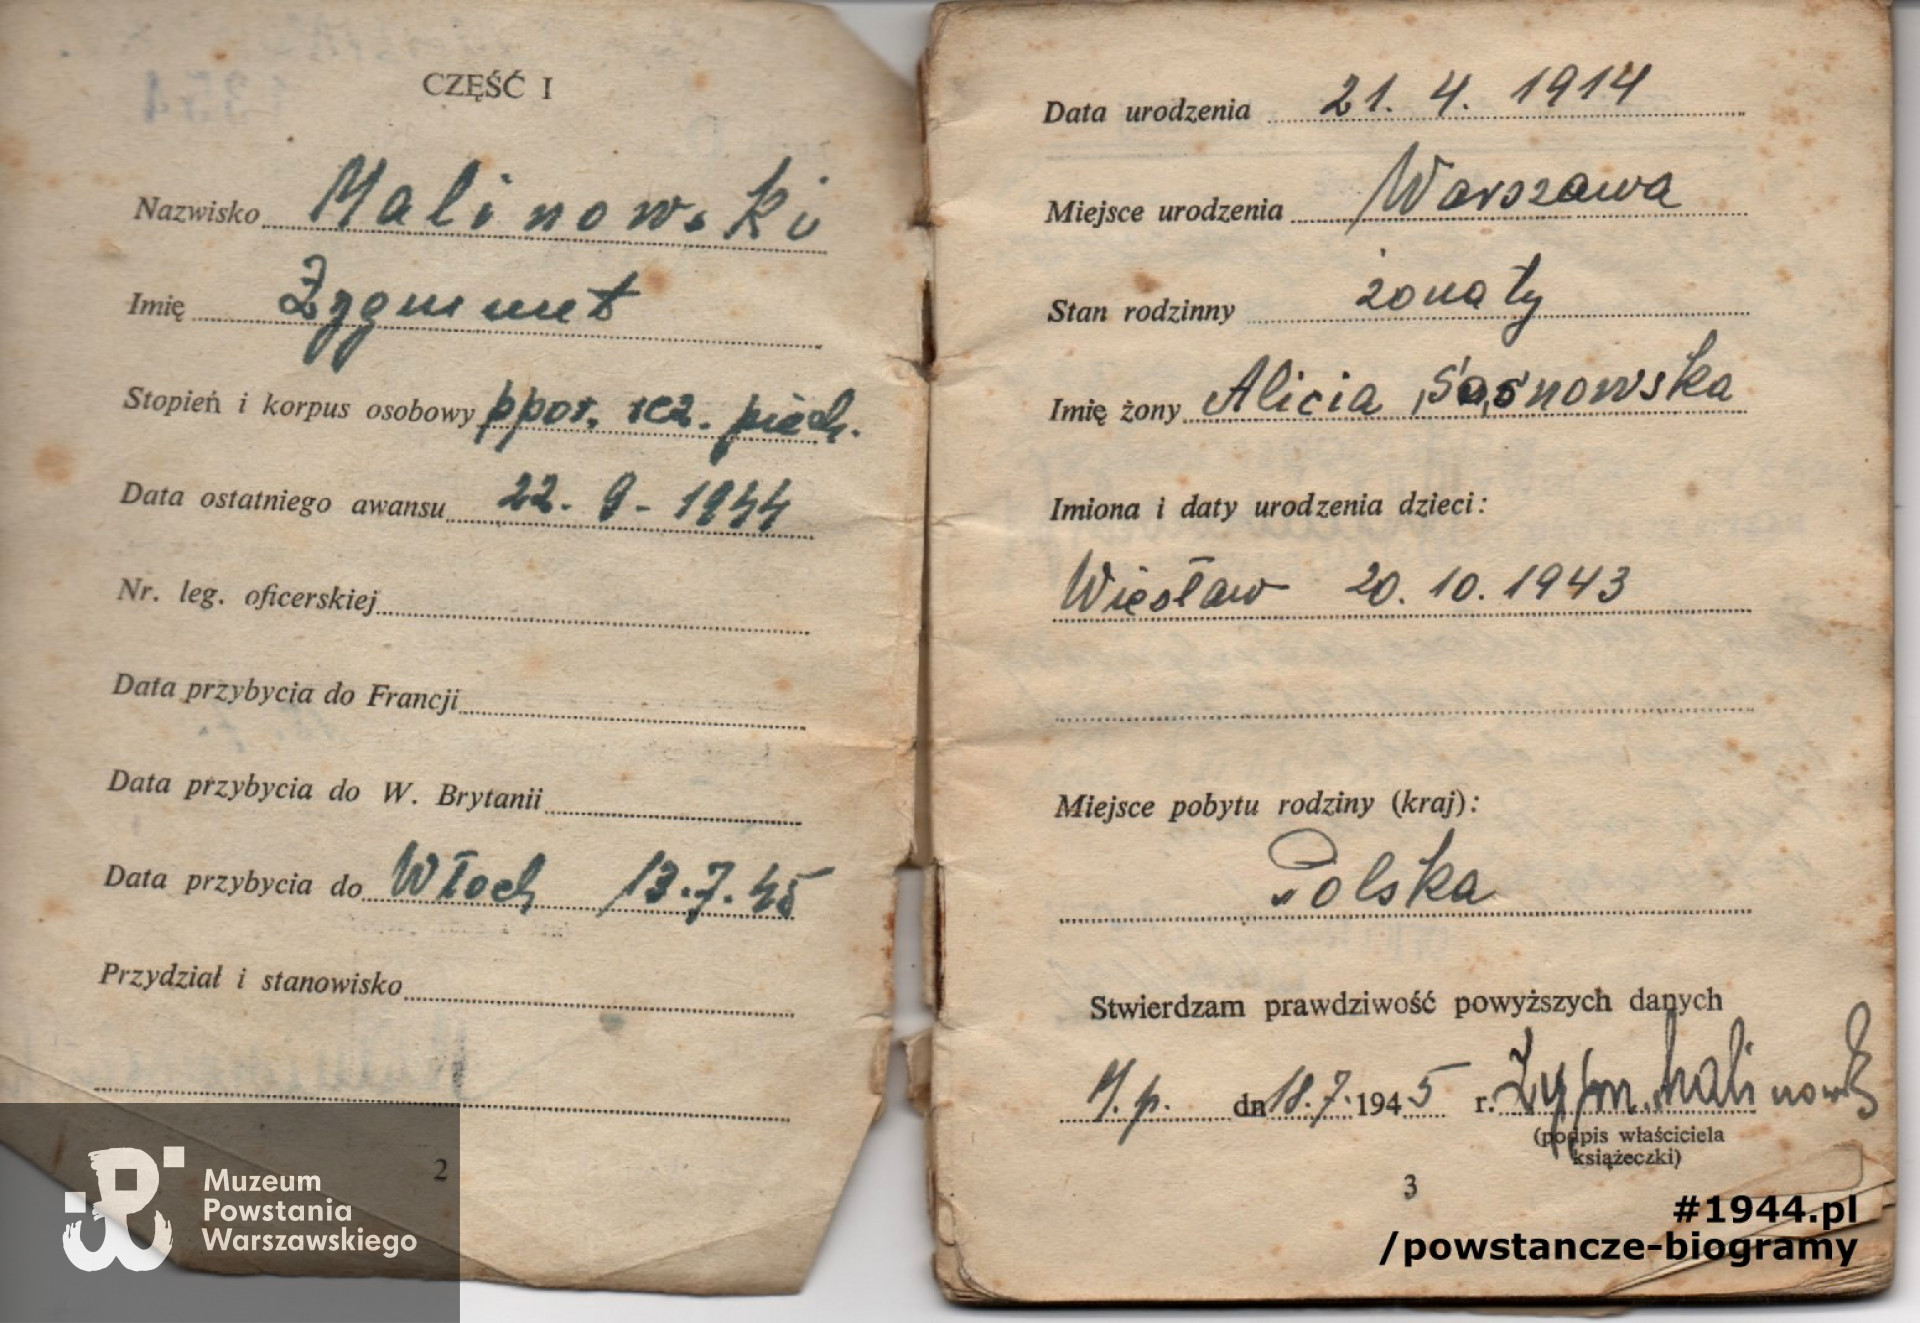 CZĘŚĆ I
Nazwisko Malinowski
Imię Zygmunt
Stopień i korpus osobowy ppor. rez. piech.
Data ostatniego awansu 22. 9. 1944
Nr. leg. oficerskiej
Data przybycia do Francji
Data przybycia do W. Brytanii
Data przybycia do Włoch 13.7.45
Przydział i stanowisko
2
Muzeum
Powstania
Warszawskiego
Data urodzenia 21. 4. 1914
Miejsce urodzenia Warszawa
Stan rodzinny żonaty
Imię żony Alicia Sosnowska
Imiona i daty urodzenia dzieci:
Wiesław 20. 10. 1943
Miejsce pobytu rodziny (kraj):
Polska
Stwierdzam prawdziwość powyższych danych
M.p. dn 18.7.1945 r. Zygm. Malinowski
(podpis właściciela
książeczki)
3
#1944.pl
/powstancze-biogramy